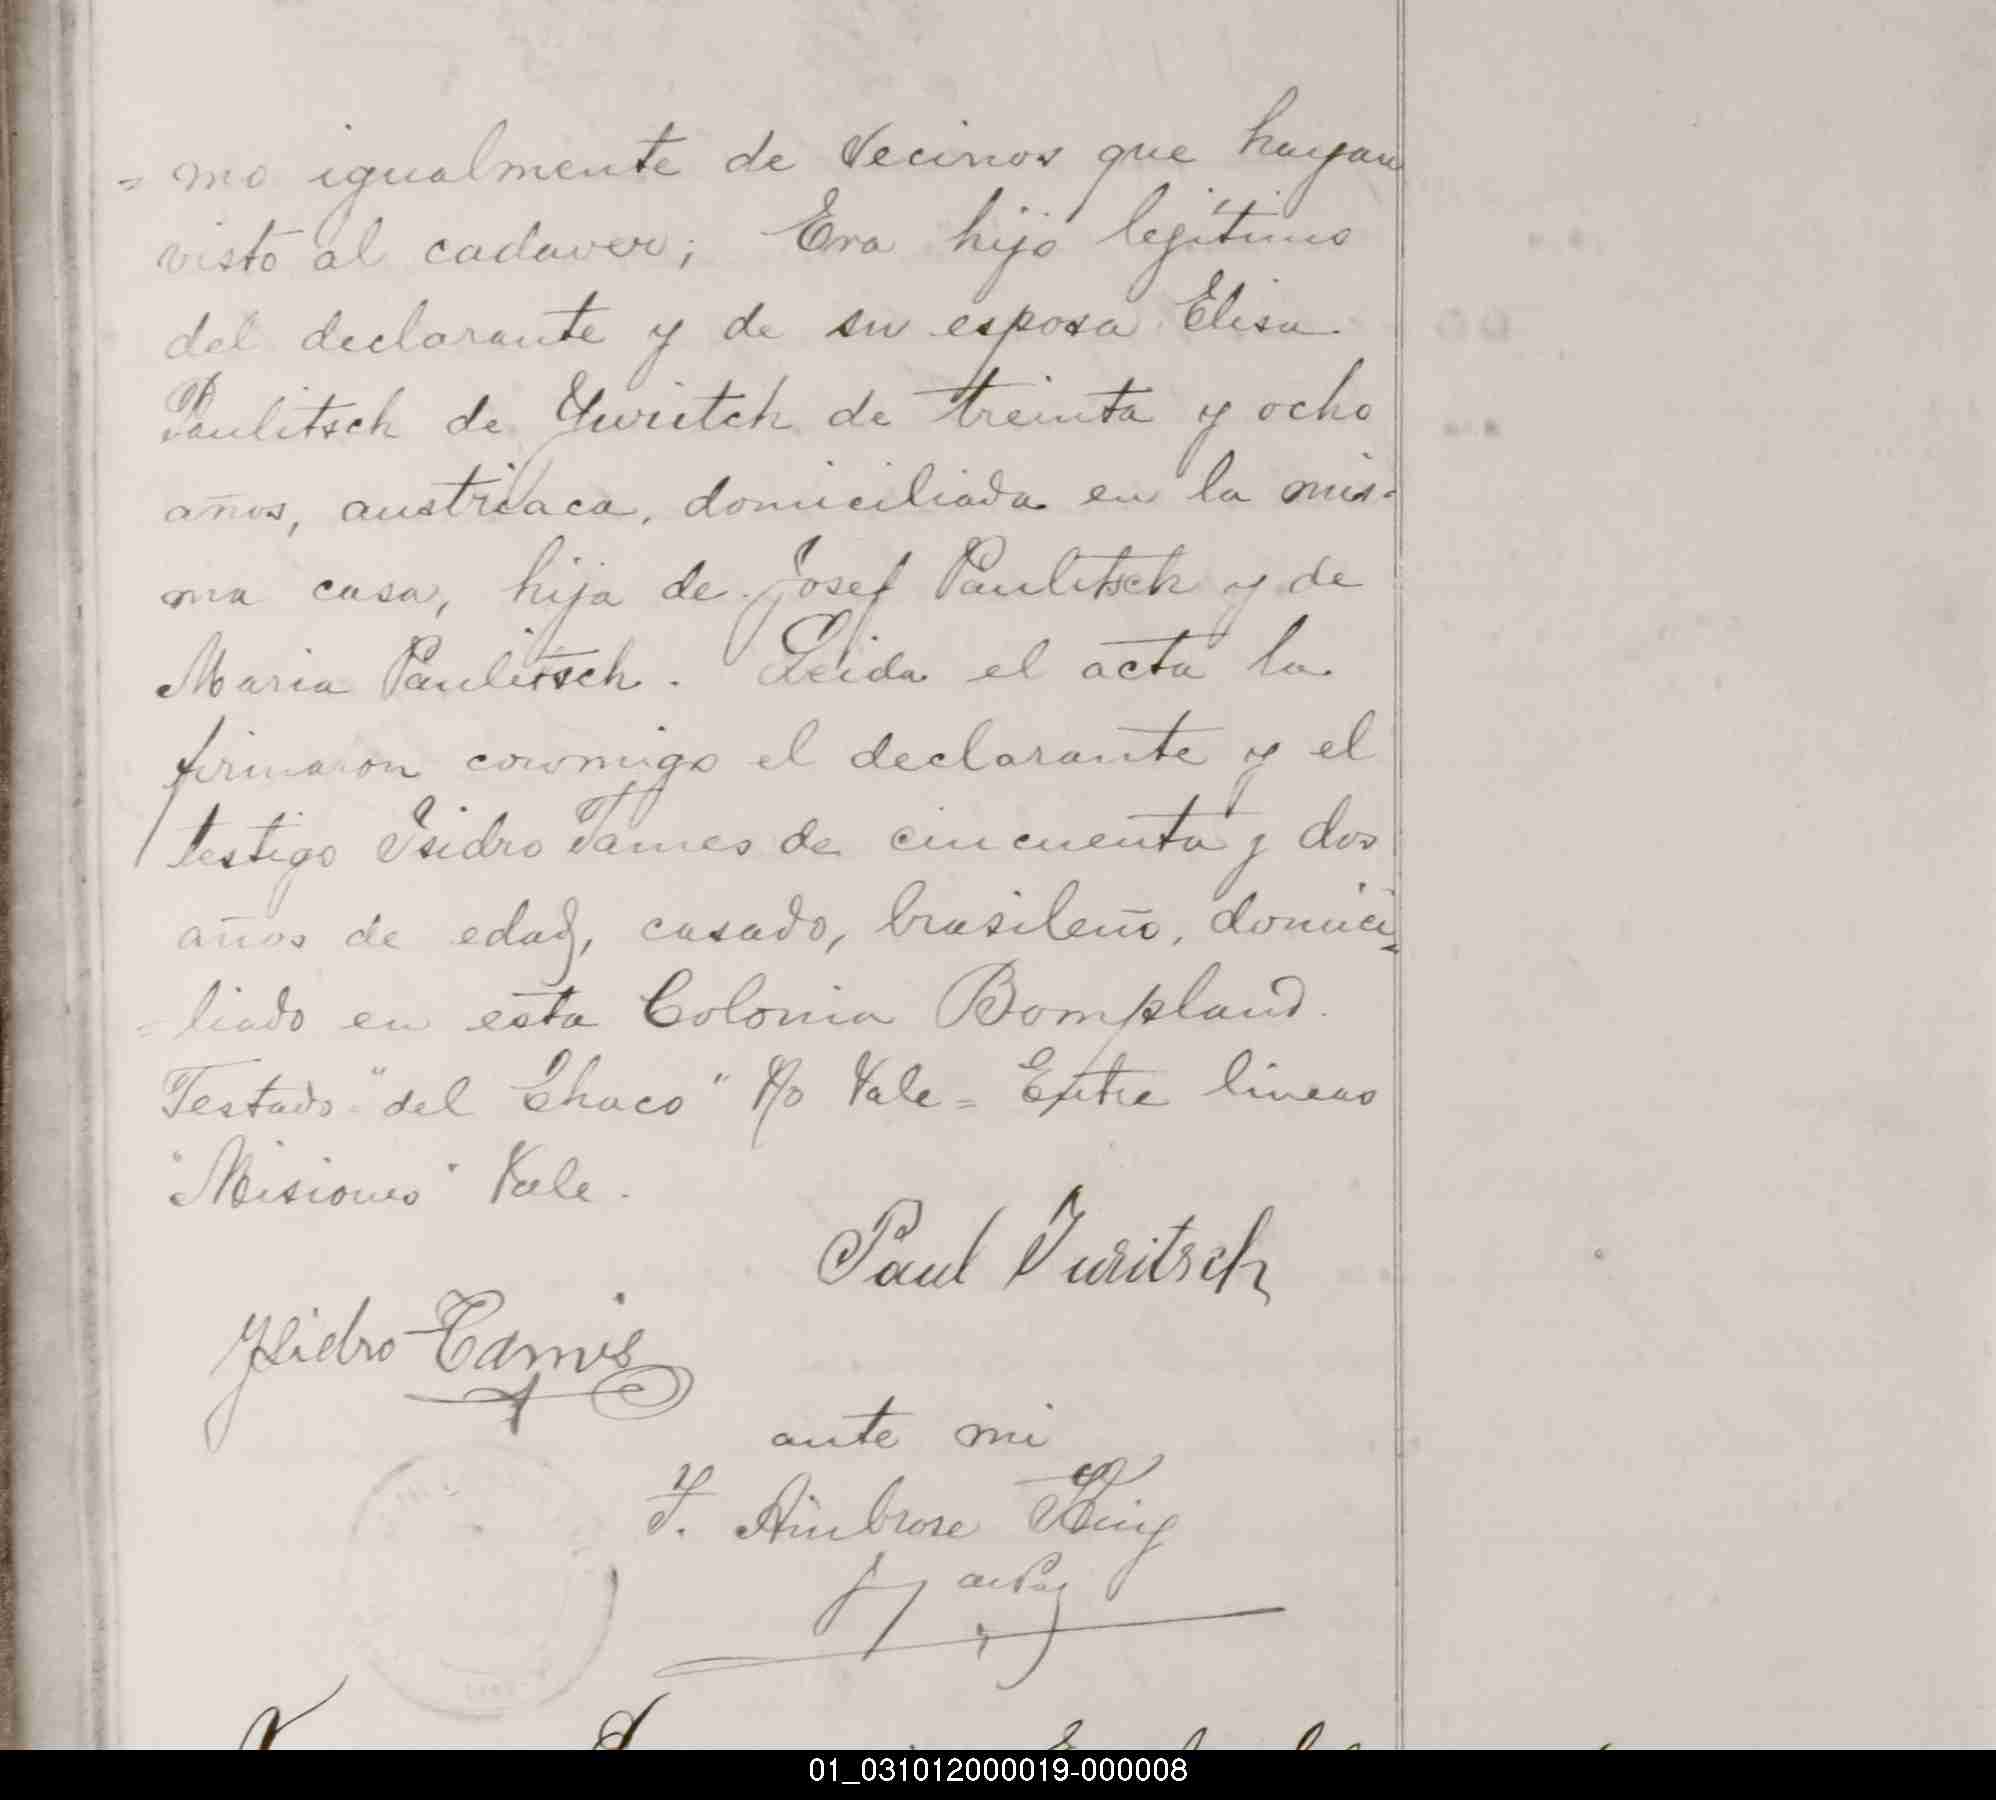 = mo igualmente de vecinos que hayan
visto al cadaver; Era hijo legítimo
del declarante y de su esposa Elisa
Paulitsch de Yuritch de treinta y ocho
años, austriaca, domiciliada en la mis-
ma casa, hija de Josef Paulitsch y de
Maria Paulitsch. Leida el acta la
firmaron conmigo el declarante y el
testigo Isidro Tames de cincuenta y dos
años de edad, casado, brasileño, domici=
= liado en esta Colonia Bompland.
Testado "del Chaco" No Vale = Entre lineas
"Misiones" Vale.
Paul Juritsch
Isidro Tamis
ante mi
F. Ambrose King
de Paz
01_031012000019-000008